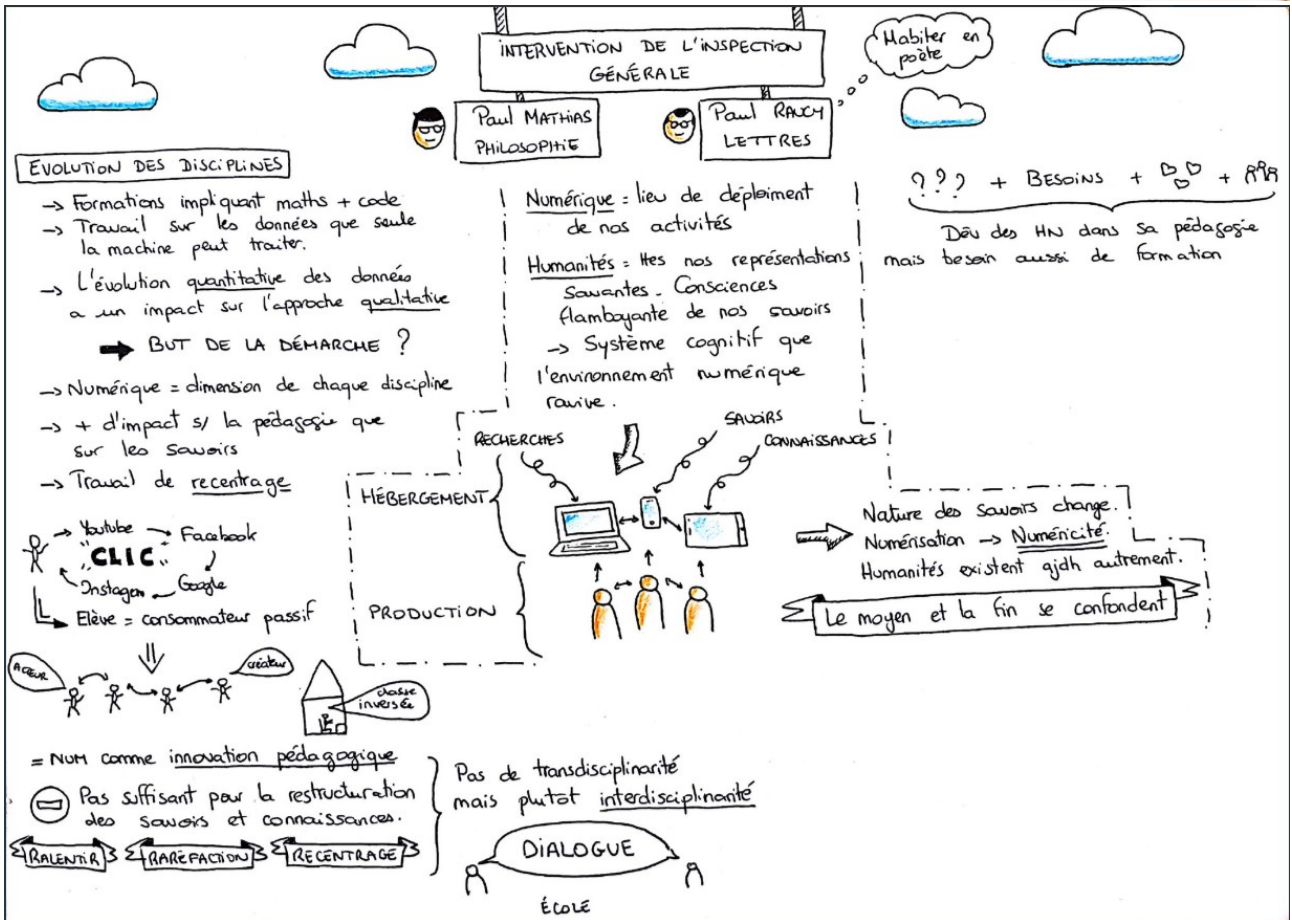 INTERVENTION DE L'INSPECTION
GÉNÉRALE
Habiter en
poète
Paul MATHIAS
PHILOSOPHIE
Paul RAUCY
LETTRES
EVOLUTION DES DISCIPLINES
-> Formations impliquant maths + code
-> Travail sur les données que seule
la machine peut traiter.
-> L'évolution quantitative des données
a un impact sur l'approche qualitative
➡ BUT DE LA DÉMARCHE ?
-> Numérique = dimension de chaque discipline
-> + d'impact s/ la pédagogie que
sur les savoirs
-> Travail de recentrage
Youtube
Facebook
CLIC
Instagen
Google
Elève = consommateur passif
ACTEUR
créateur
classe
inversée
= NUM comme innovation pédagogique
Pas suffisant pour la restructuration
des savoirs et connaissances.
RALENTIR
RARÉFACTION
RECENTRAGE
Numérique = lieu de déploiment
de nos activités
Humanités = ttes nos représentations
Savantes. Consciences
flamboyante de nos savoirs
-> Système cognitif que
l'environnement numérique
ravive.
RECHERCHES
SAVOIRS
CONNAISSANCES
HÉBERGEMENT
PRODUCTION
Pas de transdisciplinarité
mais plutôt interdisciplinarité
DIALOGUE
ÉCOLE
??? + BESOINS + +
Dév des HN dans sa pédagogie
mais besoin aussi de formation
Nature des savoirs change.
Numérisation -> Numéricité.
Humanités existent ajdh autrement.
Le moyen et la fin se confondent